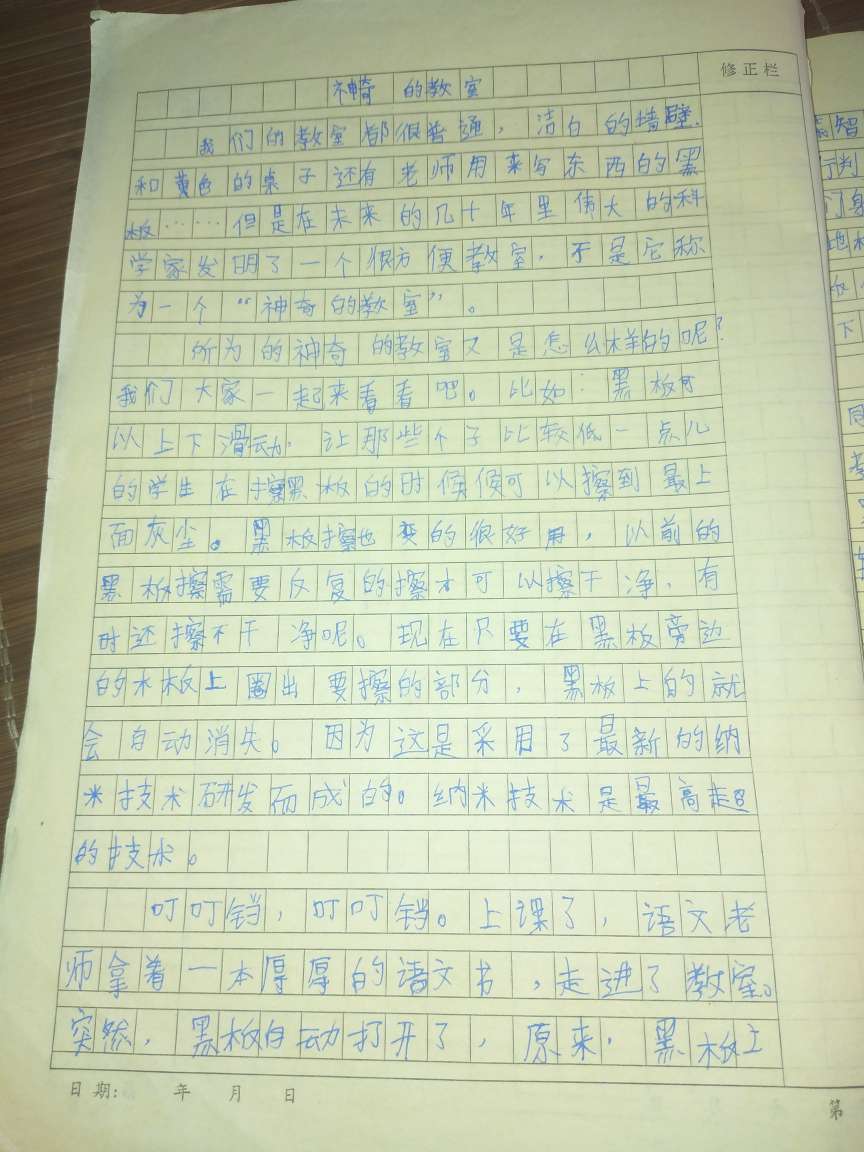 修正栏
神奇的教室
我们的教室都很普通，洁白的墙壁、
和黄色的桌子还有老师用来写东西的黑
板……但是在未来的几十年里伟大的科
学家发明了一个很方便教室，于是它称
为一个“神奇的教室”。
所为的神奇的教室又是怎么样的呢？
我们大家一起来看看吧。比如：黑板可
以上下滑动，让那些个子比较低一点儿
的学生在擦黑板的时候候可以擦到最上
面灰尘。黑板擦也变的很好用，以前的
黑板擦需要反复的擦才可以擦干净，有
时还擦不干净呢。现在只要在黑板旁边
的木板上圈出要擦的部分，黑板上的就
会自动消失。因为这是采用了最新的纳
米技术研发而成的。纳米技术是最高超
的技术。
叮叮铛，叮叮铛。上课了，语文老
师拿着一本厚厚的语文书，走进了教室。
突然，黑板自动打开了，原来，黑板上
日期： 年 月 日
第
智
行判
门
地
下
同